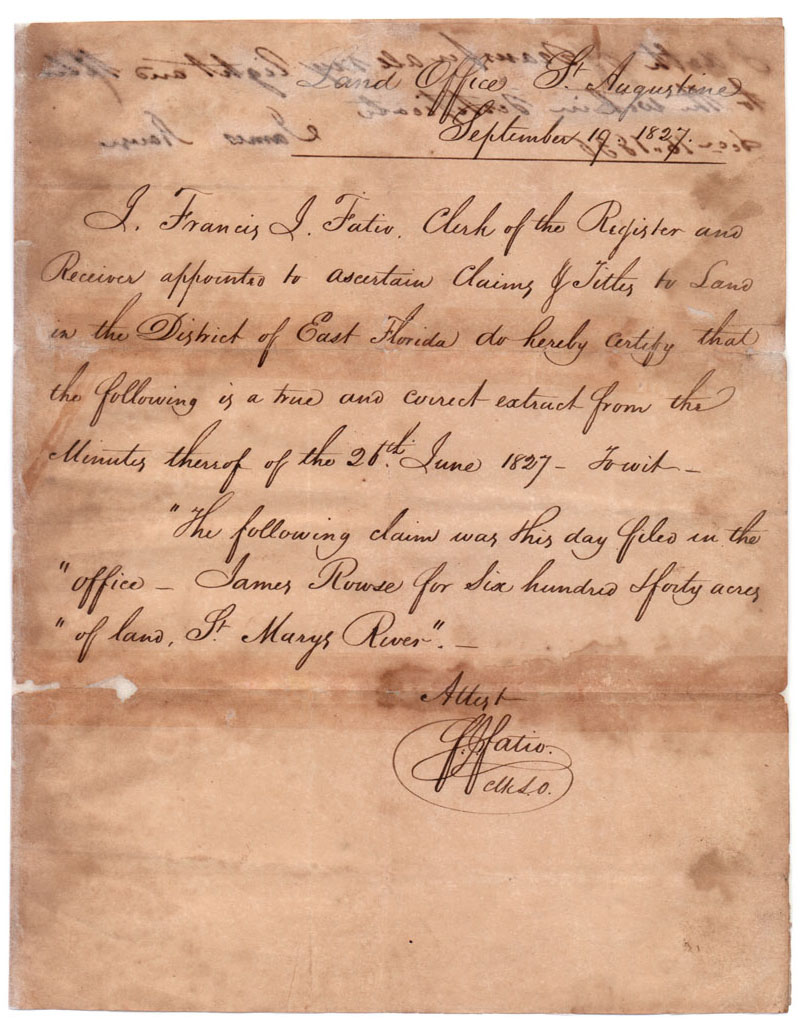 Land Office St. Augustine
September 19. 1827.
I. Francis J. Fatio. Clerk of the Register and
Receiver appointed to ascertain Claims & Titles to Land
in the District of East Florida do hereby certify that
the following is a true and correct extract from the
Minutes thereof of the 26th. June 1827 – Towit –
"The following claim was this day filed in the
"office – James Rowse for Six hundred & forty acres
"of land, St. Marys River". –
Attest
F. J. Fatio.
Clk L.O.